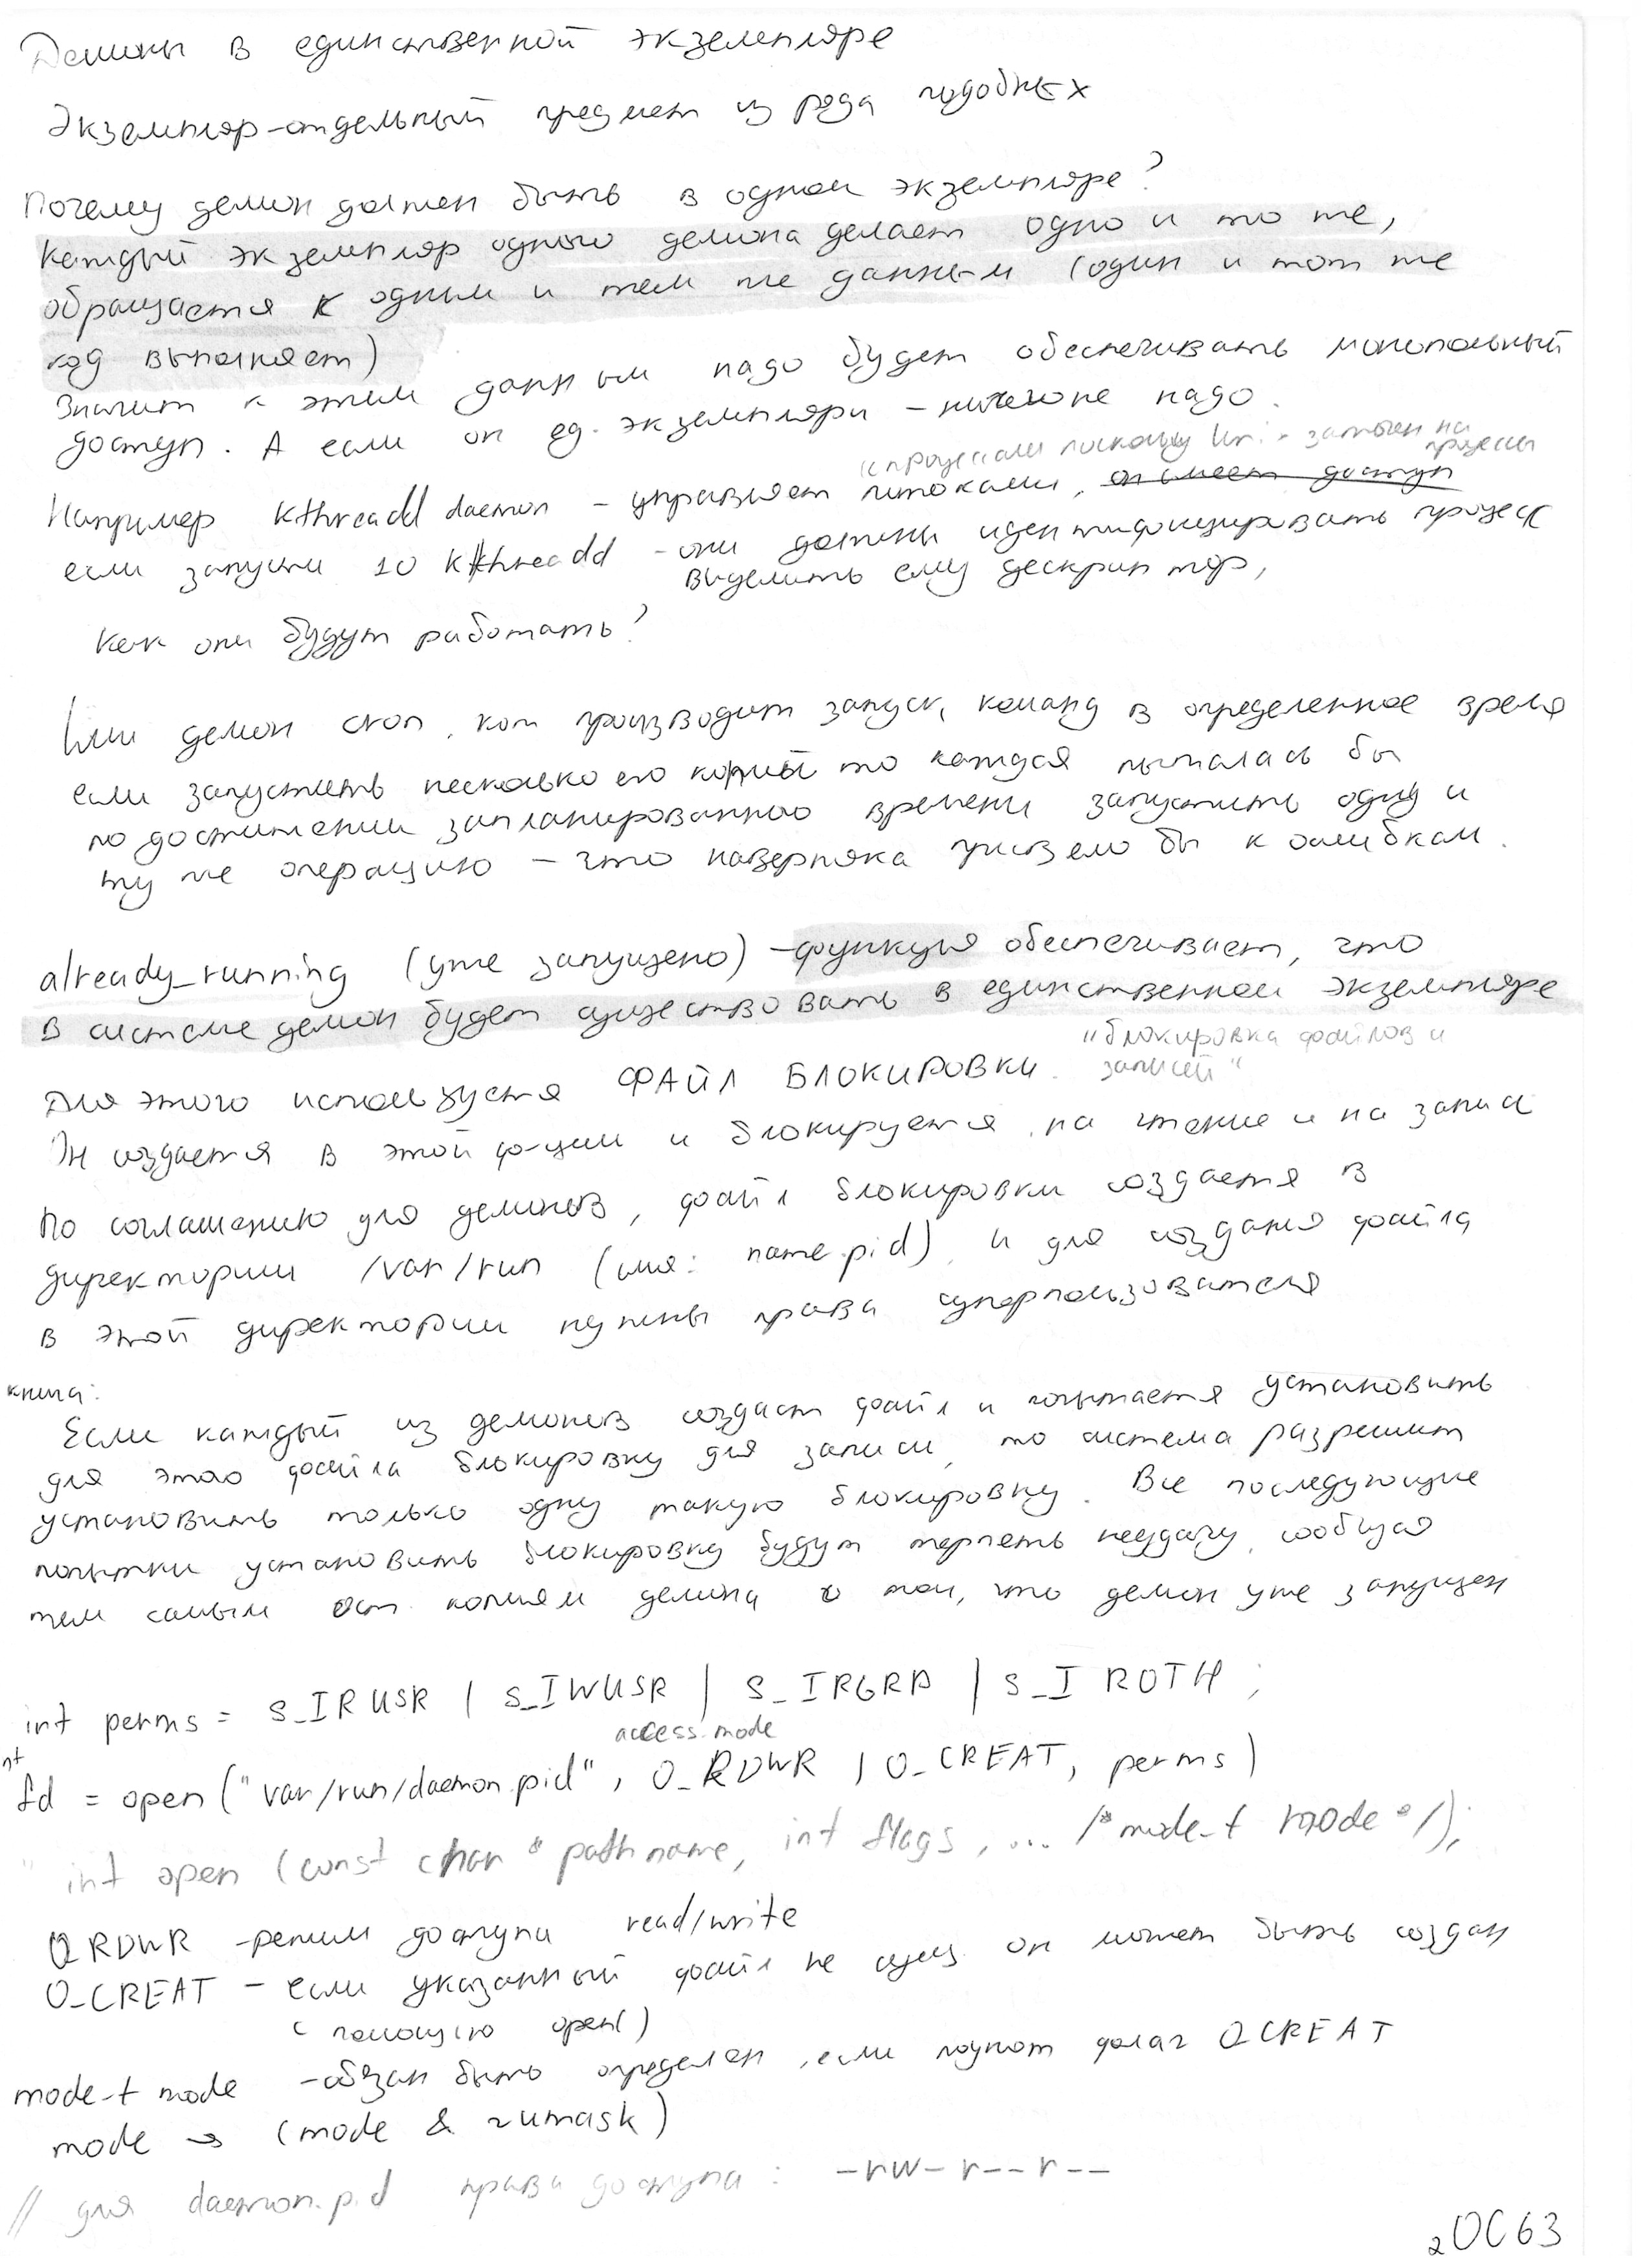 Демоны в единственной экземпляре
Экземпляр-отдельный предмет из ряда подобных
Почему демон должен быть в одном экземпляре?
Каждый экземпляр одного демона делает одно и то же,
обращается к одним и тем же данным (один и тот же
код выполняет)
Значит к этим данным надо будет обеспечивать монопольный
доступ. А если он ед. экземпляри - ничего не надо.
и процессами поскольку Uni- затычен на
процессы
Например kthreadd daemon - управляет потоками, он имеет доступ
если запустим 10 kthreadd - они должны идентифицировать процесс
выделить ему дескриптор,
Как они будут работать?
Или демон cron, кот производит запуск команд в определенное время
если запустить несколько его копий то каждая пыталась бы
по достижении запланированного времени запустить одну и
ту же операцию - что наверняка привело бы к ошибкам.
already_running (уже запущено) - функция обеспечивает, что
в системе демон будет существовать в единственном экземпляре
"блокировка файлов и
записей"
Для этого используется ФАЙЛ БЛОКИРОВКИ.
Он создается в этой ф-ции и блокируется на чтение и на запись
По соглашению для демонов, файл блокировки создается в
директории /var/run (имя: name.pid) и для создания файла
в этой директории нужны права суперпользователя
книга:
Если каждый из демонов создаст файл и попытается установить
для этого файла блокировку для записи, то система разрешит
установить только одну такую блокировку. Все последующие
попытки установить блокировку будут терпеть неудачу, сообщая
тем самым ост. копиям демона о том, что демон уже запущен
int perms = S_IRUSR | S_IWUSR | S_IRGRP | S_IROTH;
access mode
int
fd = open("var/run/daemon.pid", O_RDWR | O_CREAT, perms)
" int open (const char * pathname, int flags, ... /*mode_t mode*/);
O_RDWR - режим доступа read/write
O_CREAT - если указанный файл не сущ. он может быть создан
с помощью open()
mode_t mode - обязан быть определен, если поднят флаг O_CREAT
mode → (mode & ~umask)
// для daemon.pid права доступа: -rw-r--r--
2ОС63